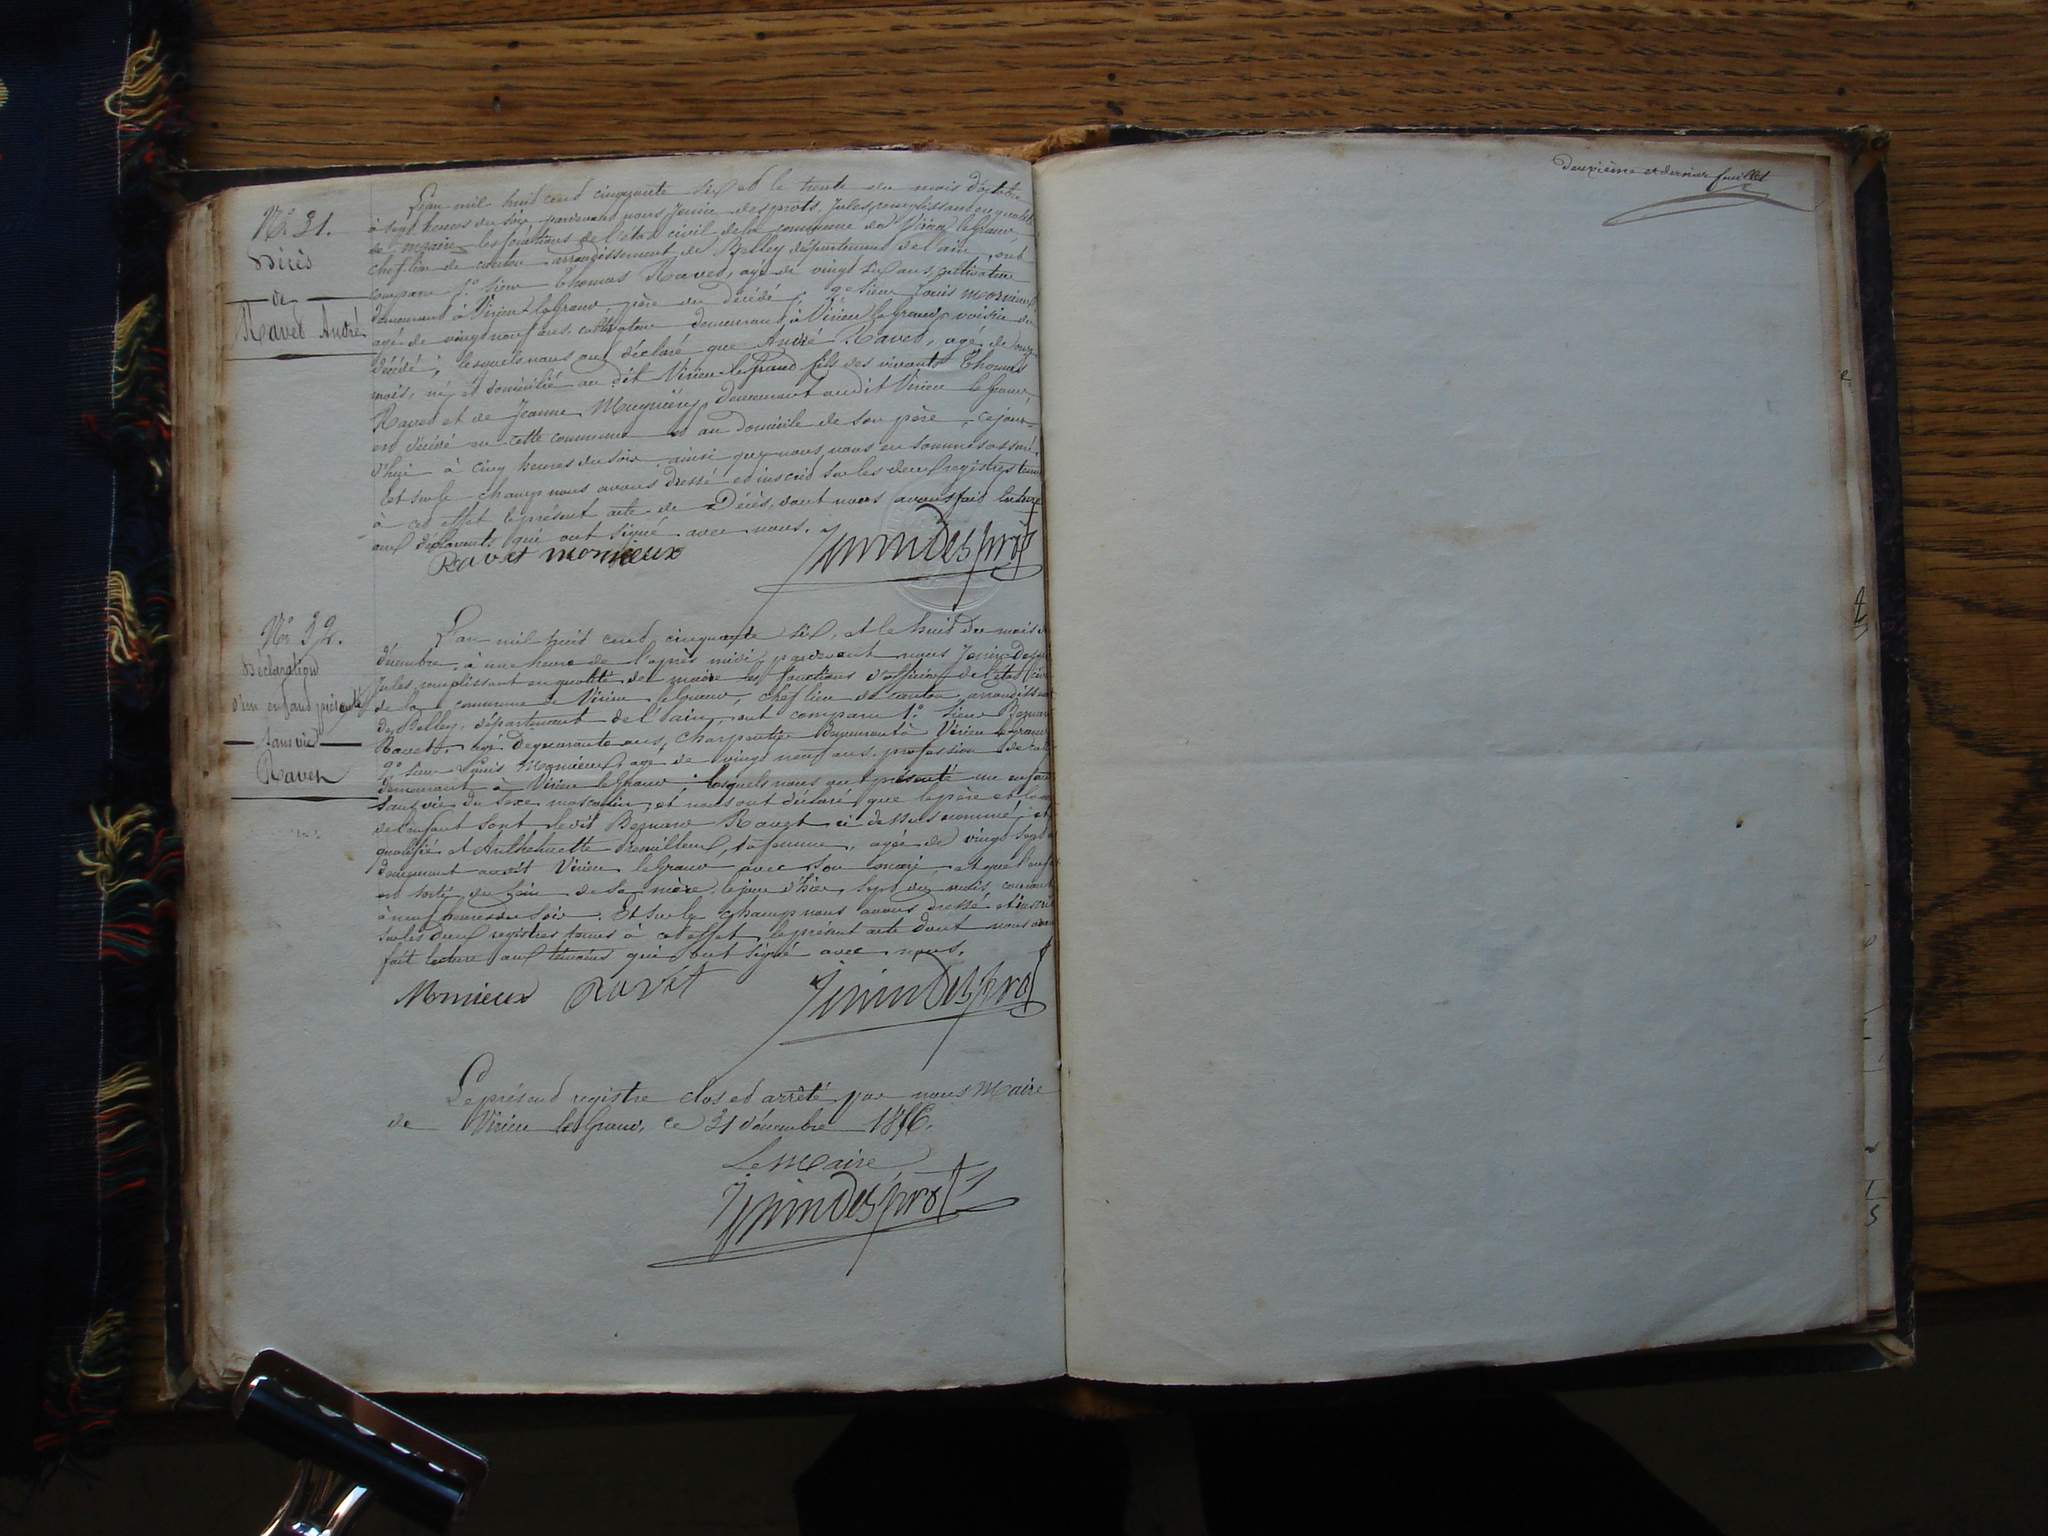 N° 31.
Décès
de
Ravet André
L'an mil huit cent cinquante six et le trente du mois d'octobre
à sept heures du soir pardevant nous Jenin desprots, Jules, remplissant en qualité
de maire les fonctions de l'état civil de la commune de Virieu le Grand,
chef lieu de canton arrondissement de Belley département de l'ain, ont
comparu 1° sieur Thomas Ravet, agé de vingt six ans, cultivateur
demeurant à Virieu le Grand père du décédé, 2° sieur Louis Mornieux
agé de vingt neuf ans, cultivateur demeurant à Virieu le Grand, voisin du
décédé; lesquels nous ont déclaré que André Ravet, agé de onze
mois, né et domicilié au dit Virieu le Grand fils des vivants Thomas
Ravet et de Jeanne demeurant audit Virieu le Grand
est décédé en cette commune et au domicile de son père cejour-
d'hui à cinq heures du soir ainsi que nous nous en sommes assuré.
Et sur le champ nous avons dressé et inscrit sur les deux registres tenus
à cet effet le présent acte de Décès, dont nous avons fait lecture
aux déclarants qui ont signé avec nous.
Ravet mornieux Jenin Desprot
N° 32.
Déclaration
d'un enfant présenté
sans vie
Ravet
L'an mil huit cent cinquante six, et le huit du mois de
décembre à une heure de l'après midi, pardevant nous Jenin Despr
Jules, remplissant en qualité de maire les fonctions d'officier de l'état civil
de la commune de Virieu le Grand, chef lieu de canton, arrondissem
de Belley, département de l'ain, ont comparu 1° sieur Bernard
Ravet, agé de quarante ans, Charpentier demeurant à Virieu le Grand
2° sieur Louis Mornieux, agé de vingt neuf ans, profession de
demeurant à Virieu le Grand lesquels nous ont présenté un enfant
sans vie du sexe masculin, et nous ont déclaré que le père et la
de l'enfant sont le dit Bernard Ravet ci dessus nommé, et
qualifié et Anthelmette sa femme, agée de vingt sept
demeurant audit Virieu le Grand avec son mari, et que l'enfant
est sorti du sein de sa mère le jour d'hier sept du mois courant
à neuf heures du soir. Et sur le champ nous avons dressé et inscrit
sur les deux registres tenus à cet effet le présent acte dont nous avons
fait lecture aux témoins qui ont signé avec nous.
Mornieux Ravet Jenin Desprot
Le présent registre clos et arrêté par nous Maire
de Virieu le Grand, ce 31 décembre 1856.
Le Maire
Jenin Desprot
Deuxième et dernier feuillet